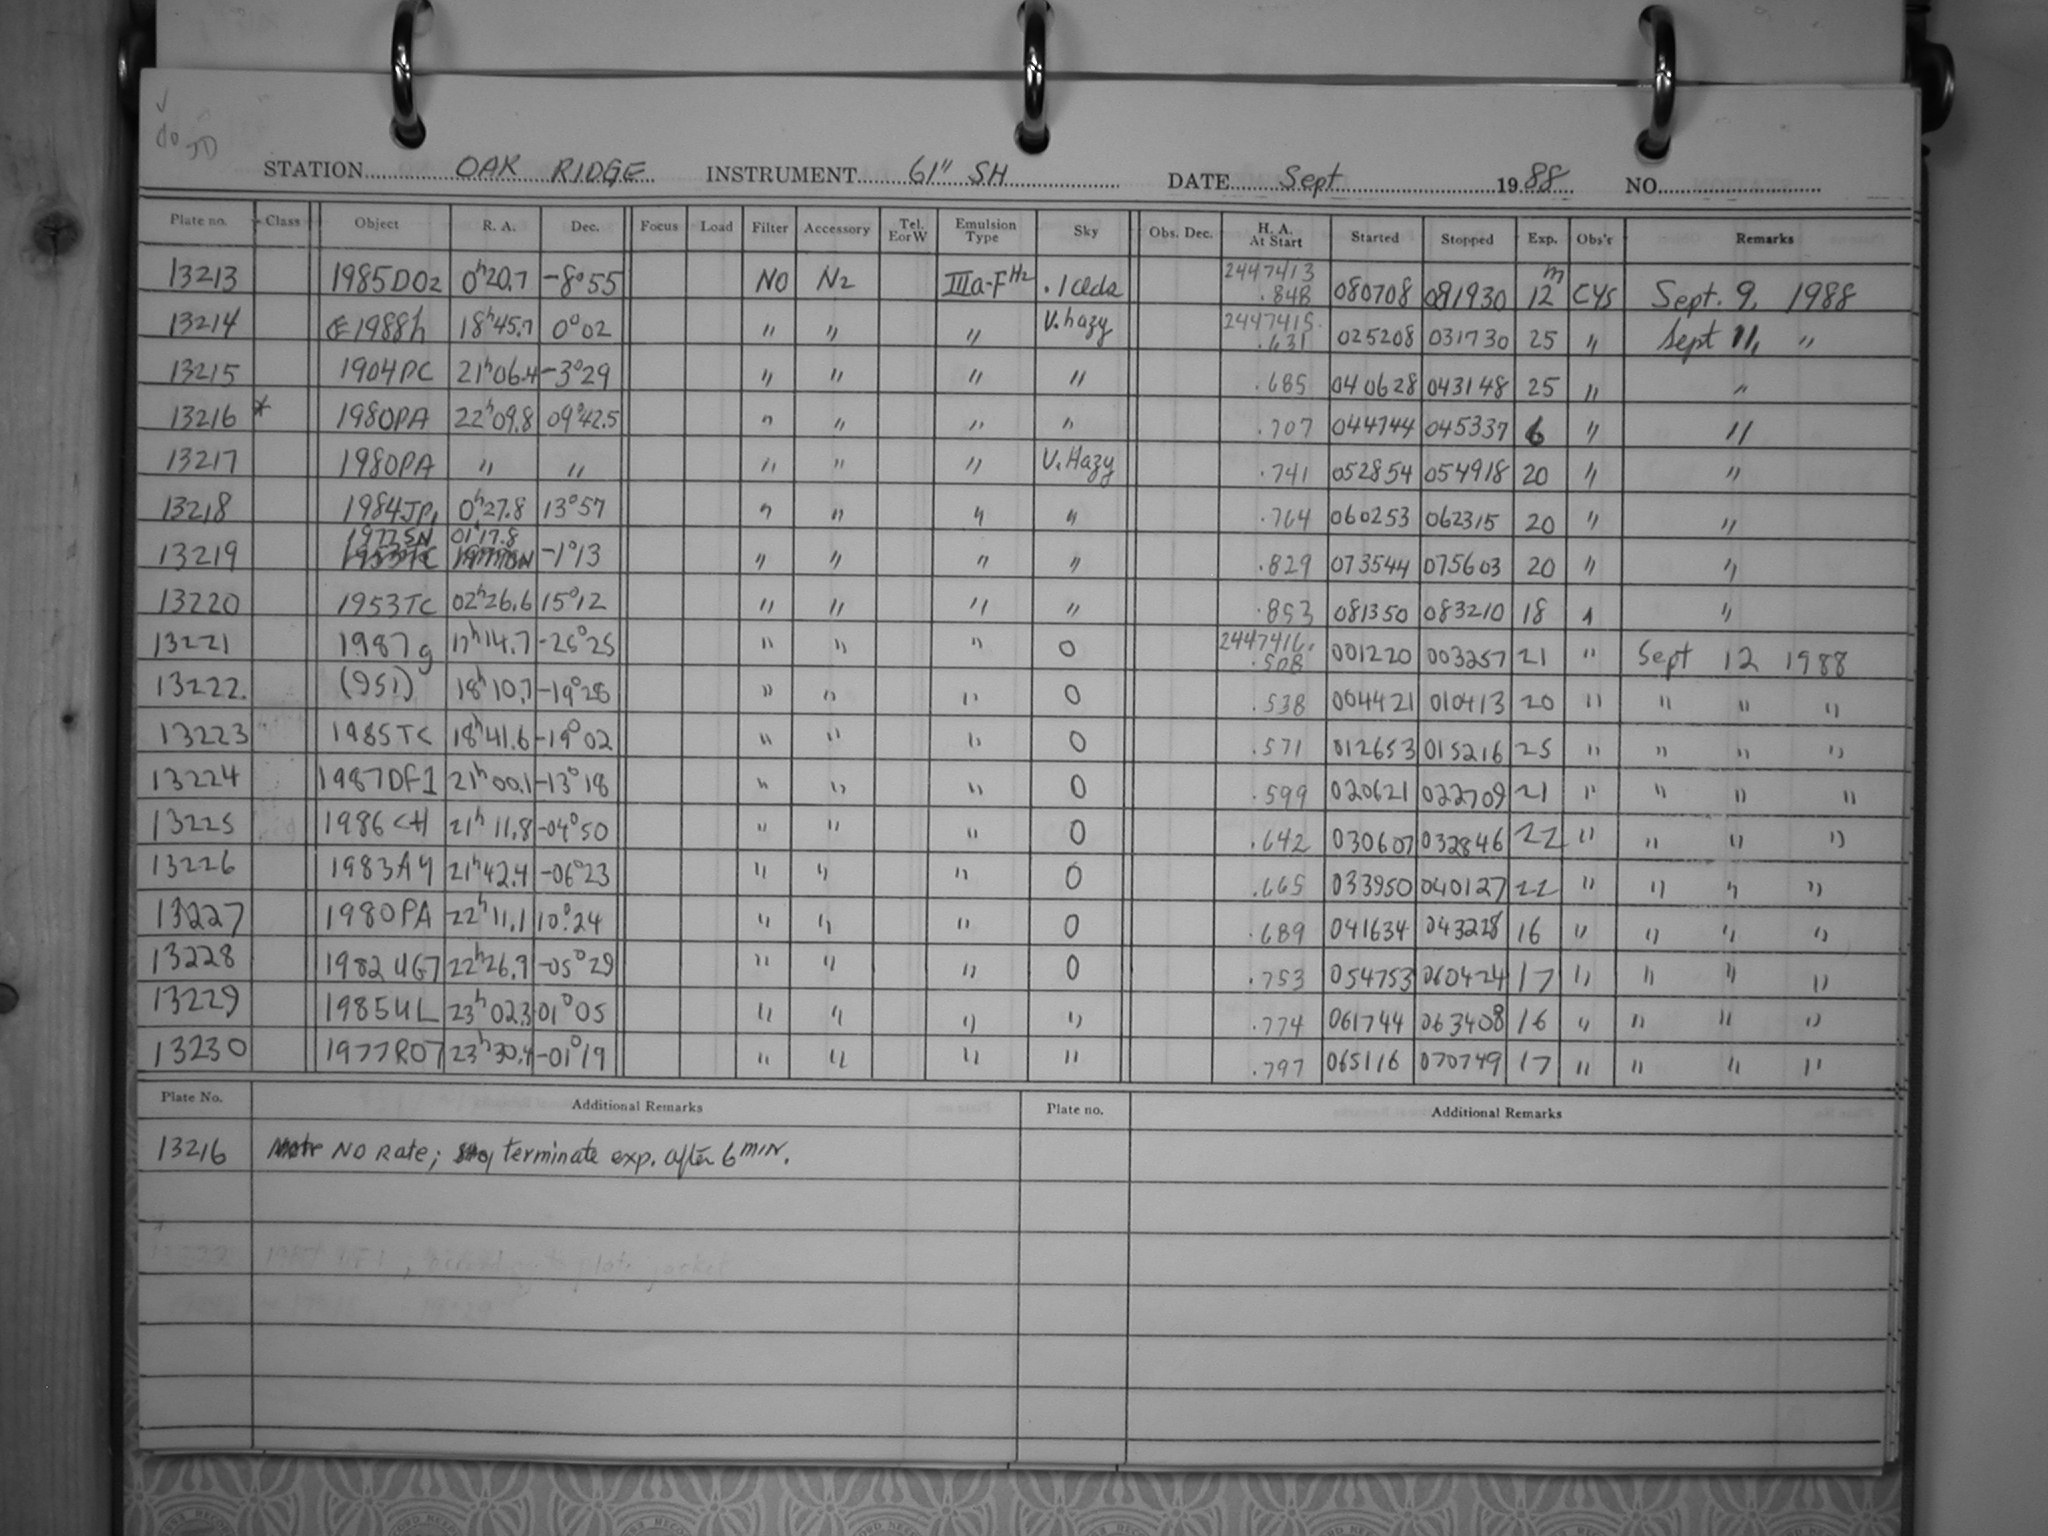 STATION OAK RIDGE INSTRUMENT 61" SH DATE Sept 1988 NO.
Plate no. Class Object R. A. Dec. Focus Load Filter Accessory Tel. E or W Emulsion Type Sky Obs. Dec. H. A. At Start Started Stopped Exp. Obs'r Remarks
13213 1985DO2 0h20.7 -8°55 NO N2 IIIa-F H2 .1 clds 2447413 .848 080708 081930 12m CYS Sept. 9, 1988
13214 1988h 18h45.7 0°02 " " " V. hazy 2447415. .631 025208 031730 25 " Sept 11, "
13215 1904PC 21h06.4 -3°29 " " " " .685 040628 043148 25 " "
13216 * 1980PA 22h09.8 09°42.5 " " " " .707 044744 045337 6 " "
13217 1980PA " " " " " V. Hazy .741 052854 054918 20 " "
13218 1984JP1 0h27.8 13°57 " " " " .764 060253 062315 20 " "
13219 1977SN 01h17.8 -1°13 " " " " .829 073544 075603 20 " "
13220 1953TC 02h26.6 15°12 " " " " .853 081350 083210 18 " "
13221 1987g 17h14.7 -25°25 " " " 0 2447416. .508 001220 003257 21 " Sept 12 1988
13222. (951) 18h10.7 -19°28 " " " 0 .538 004421 010413 20 " " " "
13223 1985TC 18h41.6 -19°02 " " " 0 .571 012653 015216 25 " " " "
13224 1987DF1 21h00.1 -13°18 " " " 0 .599 020621 022709 21 " " " "
13225 1986CH 21h11.8 -04°50 " " " 0 .642 030607 032846 22 " " " "
13226 1983AY 21h42.4 -06°23 " " " 0 .665 033950 040127 22 " " " "
13227 1980PA 22h11.1 10°24 " " " 0 .689 041634 043228 16 " " " "
13228 1982UG7 22h26.9 -05°29 " " " 0 .753 054753 060424 17 " " " "
13229 1985UL 23h02.3 01°05 " " " " .774 061744 063408 16 " " " "
13230 1977RO7 23h30.4 -01°19 " " " " .797 065116 070749 17 " " " "
Plate No. Additional Remarks Plate no. Additional Remarks
13216 NO Rate; terminate exp. after 6 min.